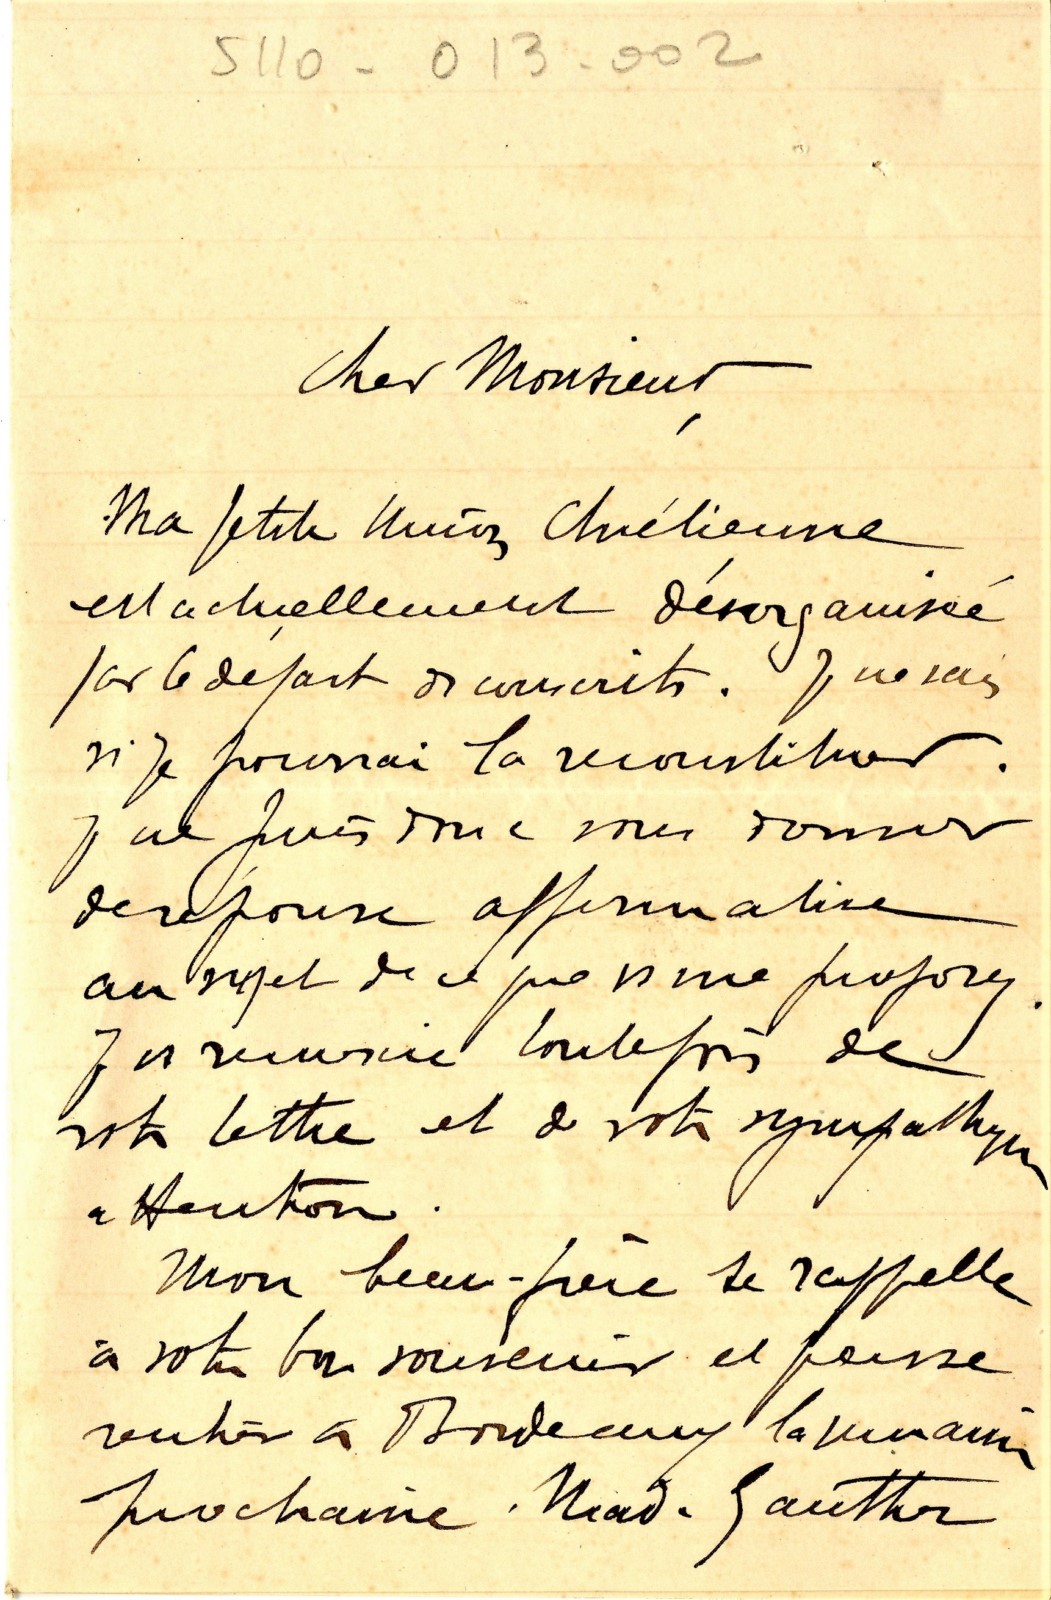 5110 - 013 - 002
Cher Monsieur,
Ma petite Union Chrétienne
est actuellement désorganisée
par le départ de conscrits. Je ne sais
si je pourrai la reconstituer.
Je ne puis donc vous donner
de réponse affirmative
au sujet de ce que vs me proposez.
Je vs remercie toutefois de
votre lettre et de votre sympathique
attention.
Mon beau-frère se rappelle
à votre bon souvenir et pense
rentrer à Bordeaux la semaine
prochaine. Mad. Gauthier